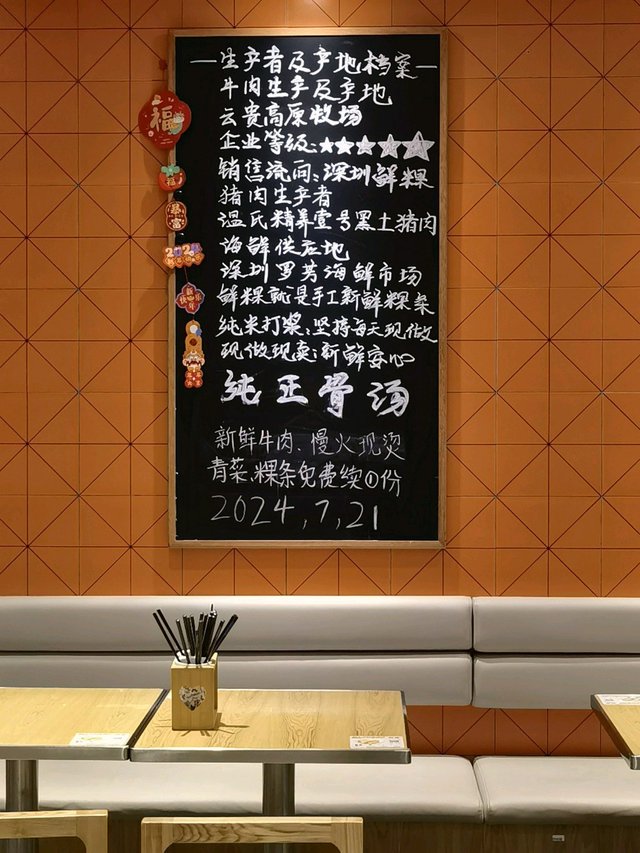 一生产者及产地档案一
牛肉生产及产地
云贵高原牧场
企业等级:★★★★★
销售流向:深圳鲜粿
猪肉生产者
温氏精养壹号黑土猪肉
海鲜供应地
深圳罗芳海鲜市场
鲜粿就是手工新鲜粿条
纯米打浆:坚持每天现做
现做现卖:新鲜安心
纯正骨汤
新鲜牛肉、慢火现烫
青菜、粿条免费续①份
2024,7,21
福
福
暴富
2020
新年快乐